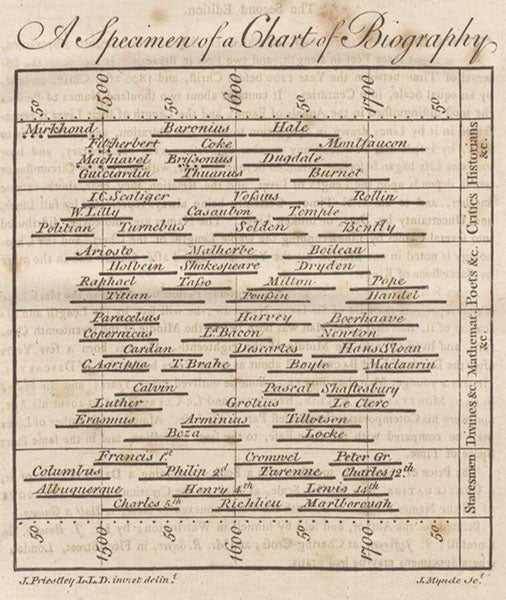 A Specimen of a Chart of Biography
50 1500 50 1600 50 1700 50
Mirkhond Baronius Hale
Fitzherbert Coke Montfaucon
Machiavel Brissonius Dugdale
Guiciardin Thuanus Burnet
Historians &c.
I.C. Scaliger Vossius Rollin
W. Lilly Casaubon Temple
Politian Turnebus Selden Bently
Critics
Ariosto Malherbe Boileau
Holbein Shakespeare Dryden
Raphael Tasso Milton Pope
Titian Poussin Handel
Poets &c.
Paracelsus Harvey Boerhaave
Copernicus Ld. Bacon Newton
Cardan Descartes Hans Sloan
C. Agrippa T. Brahe Boyle Maclaurin
Mathemat. &c.
Calvin Pascal Shaftesbury
Luther Grotius Le Clerc
Erasmus Arminius Tillotson
Beza Locke
Divines &c.
Francis 1st. Cromwel Peter Gr.
Columbus Philip 2d. Turenne Charles 12th
Albuquerque Henry 4th. Lewis 14th
Charles 5th Richlieu Marlborough
Statesmen
50 1500 50 1600 50 1700 50
J. Priestley L.L.D. inv. et delin.t
J. Mynde Sc.t